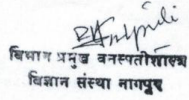 विभाग प्रमुख वनस्पतीशास्त्र
विज्ञान संस्था नागपुर